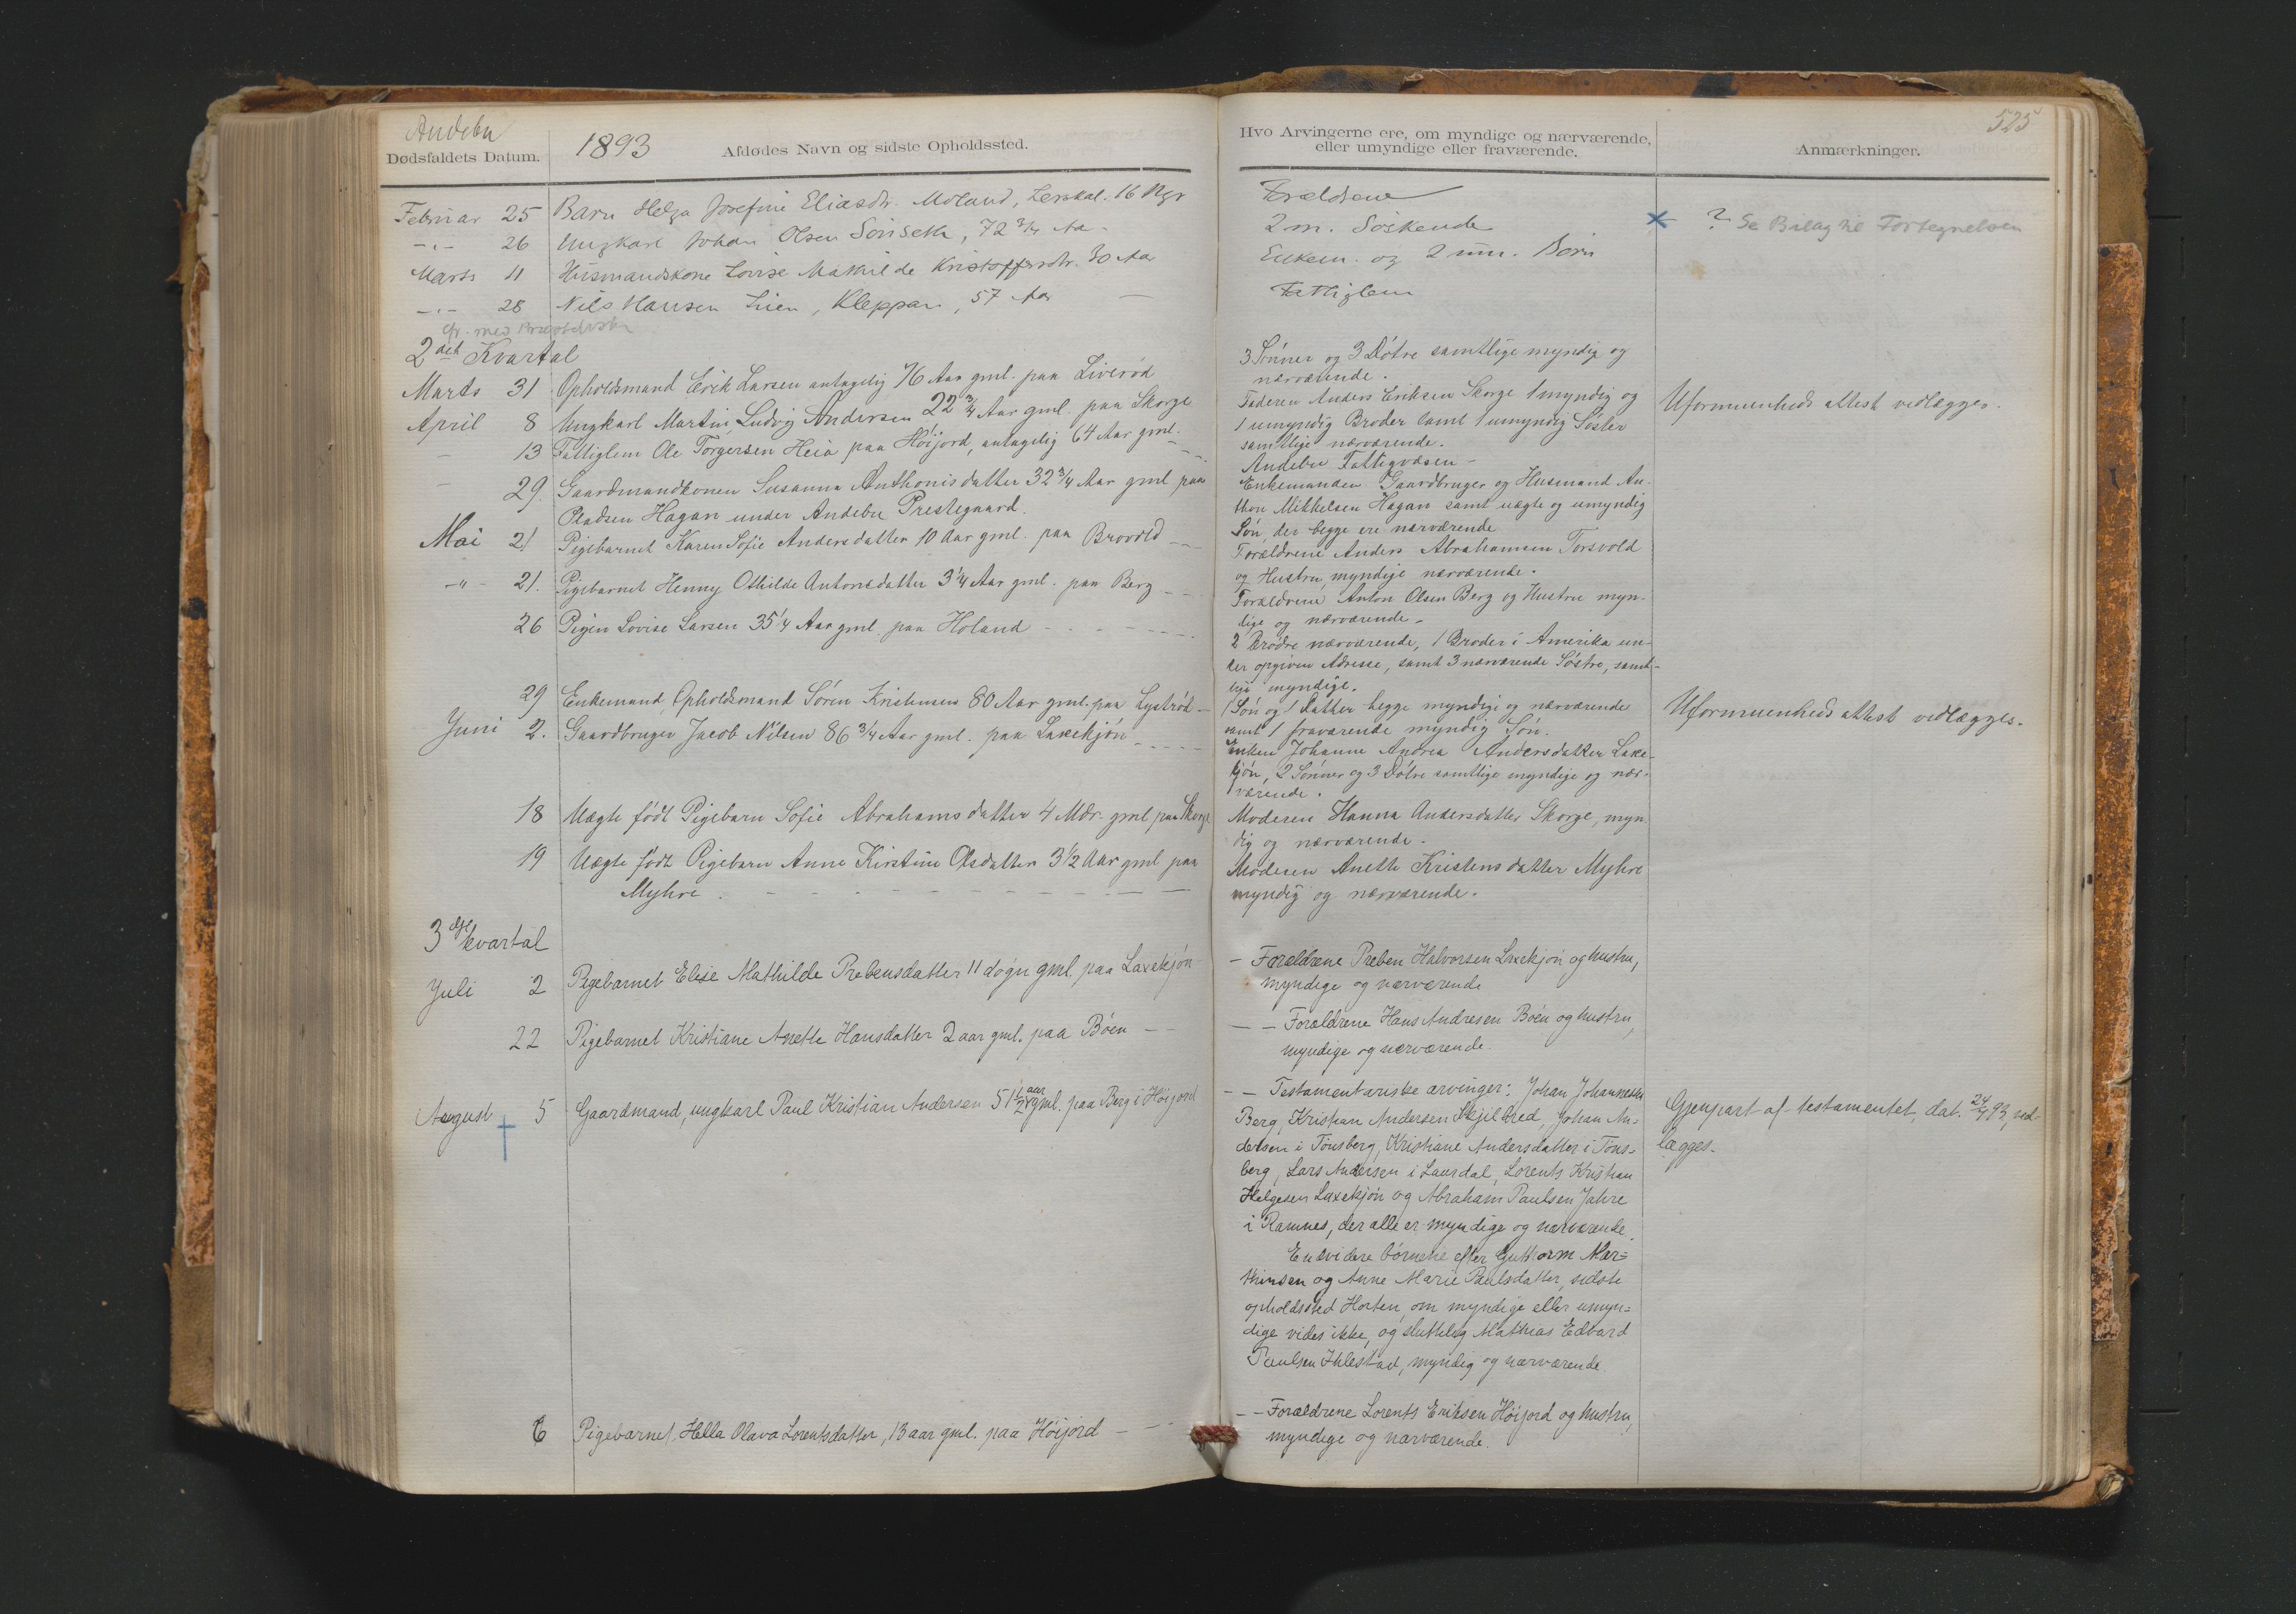 Andebu
1893
Dødsfaldets Datum.
Afdødes Navn og sidste Opholdssted.
Februar 25 Barn Helga Josefine Eliasdr. Moland, 16
-"- 26 Ungkarl Johan Olsen Sønseth, 72 3/4 Aar
Marts 11 Husmandskone Lovise Mathilde Kristoffersdtr. 30 Aar
-"- 28 Nils Hansen Lien, Kleppan, 57 Aar —
2det Kvartal
Marts 31 Opholdsmand Erik Larsen antagelig 76 Aar gml. paa Liverød
April 8 Ungkarl Martin Ludvig Andersen 22 3/4 Aar gml. paa Skorge
- 13 Fattiglem Ole Torgersen Heia paa Høijord, antagelig 64 Aar gml.
- 29. Gaardmandkonen Susanna Anthonisdatter 32 3/4 Aar gml paa
Pladsen Hagan under Andebu Prestegaard.
Mai 21 Pigebarnet Karen Sofie Andersdatter 10 Aar gml. paa
-"- 21. Pigebarnet Henny Othilde Antonsdatter 3 1/4 Aar gml. paa Berg
26 Pigen Lovise Larsen 35 1/4 Aar gml. paa Holand
29 Enkemand, Opholdsmand Sören 80 Aar gml. paa
Juni 2. Gaardbruger Jacob Nilsen 86 3/4 Aar gml. paa Laxekjön
18 Uægte födt Pigebarn Sofie Abrahamsdatter 4 Mdr. gml paa Skorge
19 Uægte födt Pigebarn Anne Kirstine Olsdatter 3 1/2 Aar gml paa
Myhre.
3dje kvartal
Juli 2 Pigebarnet Elise Mathilde Prebensdatter 11 døgn gml. paa Laxekjön
22 Pigebarnet Kristiane Anette Hansdatter 2 aar gml. paa Böen
August 5 Gaardmand, ungkarl Paul Kristian Andersen 51 1/2 aar gml. paa Berg i Höijord
6 Pigebarnet Hella Olava Lorentsdatter, 13 aar gml. paa Höijord
Hvo Arvingerne ere, om myndige og nærværende,
eller umyndige eller fraværende.
Forældrene
2 m. Söskende
Enkem. og 2 um. Börn
Fattiglem
3 Sönner og 3 Døtre samtlige myndig og
nærværende.
Faderen Anders Eriksen Skorge 1 myndig og
1 umyndig Broder samt 1 umyndig Søster
samtlige nærværende.
Andebu Fattigvæsen -
Enkemanden Gaardbruger og Husmand An-
thon Mikkelsen Hagan samt uægte og umyndig
Sön, der begge ere nærværende
Forældrene Anders Abrahamsen Torsvold
og Hustru, myndige nærværende.
Forældrene Anton Olsen Berg og Hustru myn-
dige og nærværende.
2 Brödre nærværende, 1 Broder i Amerika un-
der opgiven Adresse, samt 3 nærværende Söstre, samt-
lige myndige.
1 Sön og 1 Datter begge myndige og nærværende
samt 1 fraværende myndig Sön.
Enken Johanne Andrea Andersdatter Laxe-
kjön, 2 Sönner og 3 Døtre samtlige myndige og nær-
værende.
Moderen Hanna Andersdatter Skorge, myn-
dig og nærværende.
Moderen Anethe Kristensdatter Myhre
myndig og nærværende.
- Forældrene Preben Halvorsen Laxekjön og hustru,
myndige og nærværende
- - Forældrene Hans Andresen Böen og hustru,
myndige og nærværende.
- - Testamentariske arvinger: Johan Johannesen
Berg, Kristian Andersen Skjelbred, Johan An=
dersen i Tönsberg, Kristiane Andersdatter i Töns=
berg, Lars Andersen i Laurdal, Lorents Kristian
Helgesen Laxekjön og Abraham Paulsen Jahre
i Ramnes, der alle er myndige og nærværende.
Endvidere börnene efter Guttorm Mar=
thinsen og Anne Marie Paulsdatter, sidste
opholdssted Horten, om myndige eller umyn=
dige vides ikke, og sluttelig Mathias Edvard
Paulsen Ihlestad, myndig og nærværende.
- - Forældrene Lorents Eriksen Höijord og hustru,
myndige og nærværende.
525
Anmærkninger.
? Se Bilag til Fortegnelsen
Uformuenheds attest vedlægges.
Uformuenheds attest vedlægges.
Gjenpart af testamentet, dat. 93, ved-
lægges.